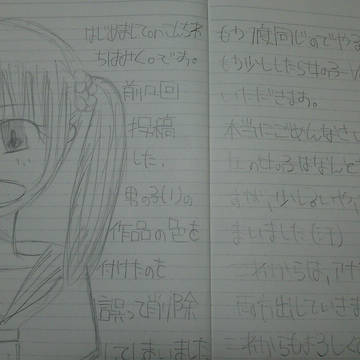 はじめましてorこんにちは
みく。です。
前回
投稿
した、
男の子(1)の
作品の色を
付けたのを
誤って削除
してしまいました
もう1度同じのでやる
もう少ししたら女の子
いただきます。
本当にごめんなさい
女の子はなんと
すが、少し
まいました(汗)
これからは、アナ
両方出していきま
これからもよろしく